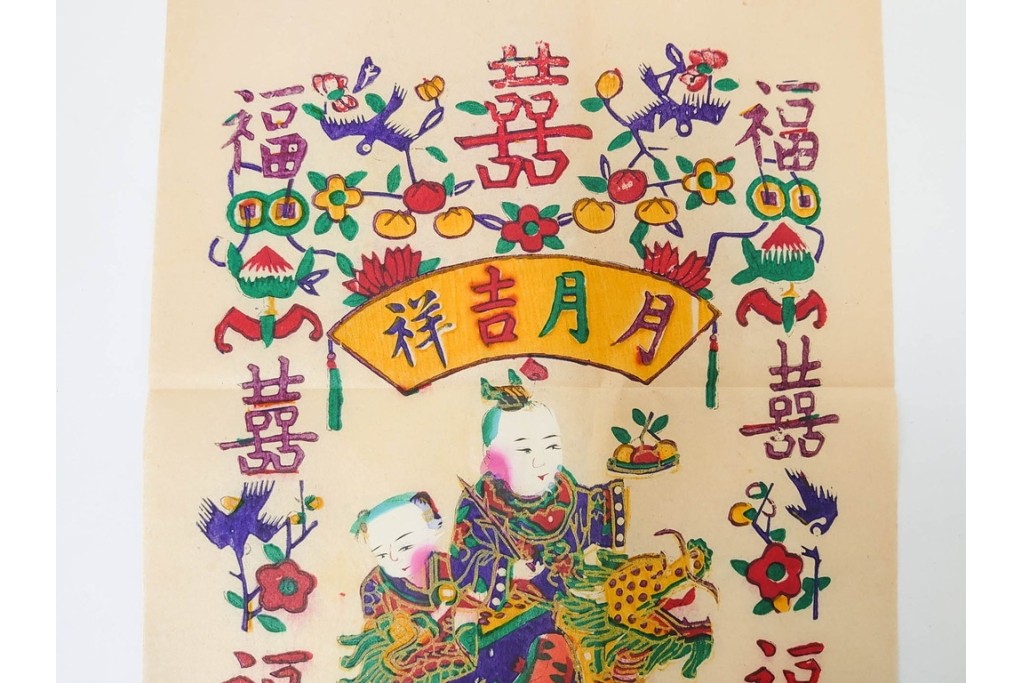 囍
福
福
月月吉祥
囍
囍